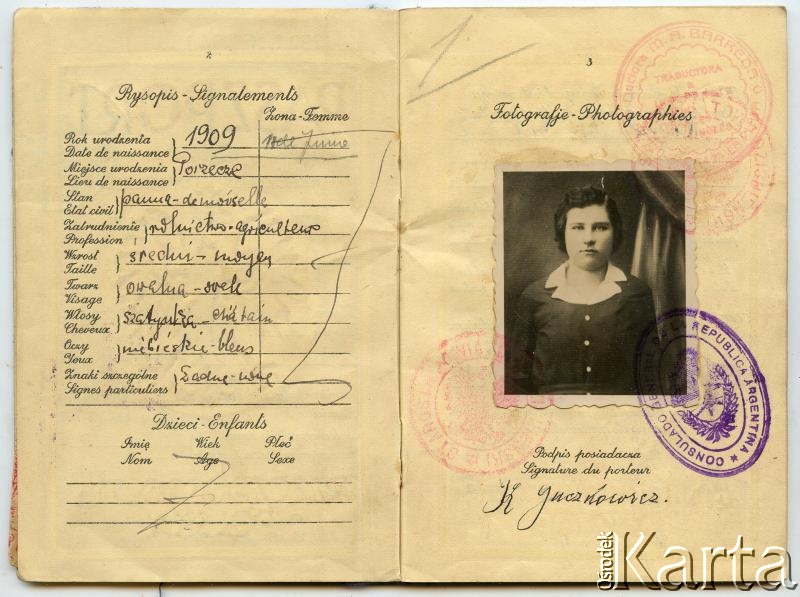 2
Rysopis - Signalements
Żona - Femme
Rok urodzenia
Date de naissance
1909
Miejsce urodzenia
Lieu de naissance
Porzecze
Stan
Etat civil
panna - demoiselle
Zatrudnienie
Profession
rolnictwo - agriculteur
Wzrost
Taille
średni - moyen
Twarz
Visage
owalna - oval
Włosy
Cheveux
szatynka - châtain
Oczy
Yeux
niebieskie - bleus
Znaki szczególne
Signes particuliers
Żadne - none
Dzieci - Enfants
Imię Wiek Płeć
Nom Age Sexe
3
Fotografje - Photographies
M. A. BARREDA
TRADUCTORA
CONSULADO GENERAL DE LA REPUBLICA ARGENTINA
Podpis posiadacza
Signature du porteur
K Juczkowicz.
ośrodek Karta